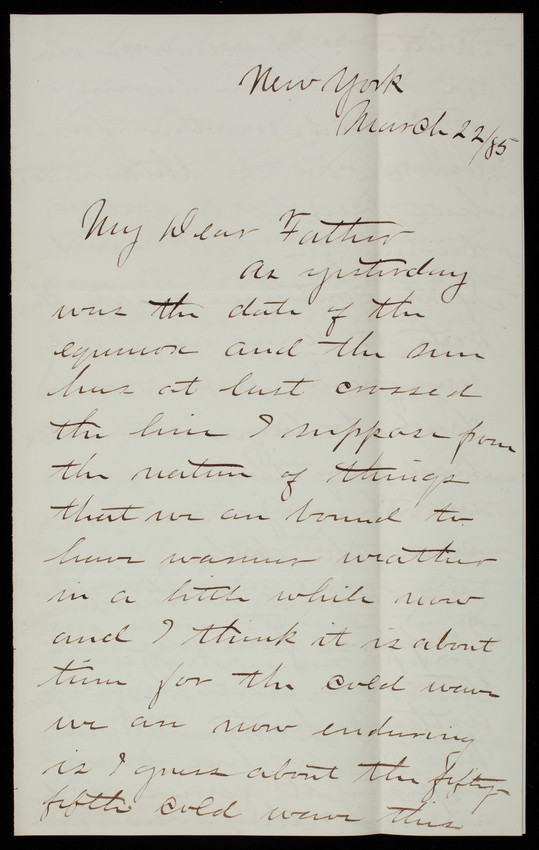 New York
March 22/85
My Dear Father
As yesterday
was the date of the
equinox and the sun
has at last crossed
the line I suppose from
the nature of things
that we are bound to
have warmer weather
in a little while now
and I think it is about
time for the cold wave
we are now enduring
is I guess about the fifty-
fifth cold wave this